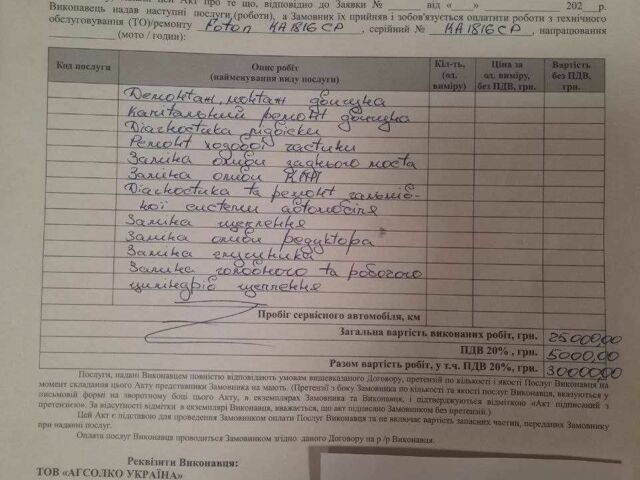 цей Акт про те, що, відповідно до Заявки № від «» 202 р.
Виконавець надав наступні послуги (роботи), а Замовник їх прийняв і зобов'язується оплатити роботи з технічного
обслуговування (ТО)/ремонту Foton KA1816CP, серійний № KA1816CP, напрацювання
(мото / годин):
Код послуги Опис робіт (найменування виду послуги) Кіл-ть, (од. виміру) Ціна за од. виміру, без ПДВ, грн. Вартість без ПДВ, грн.
Демонтаж, монтаж двигуна
Капітальний ремонт двигуна
Діагностика підвіски
Ремонт ходової частини
Заміна оливи заднього моста
Заміна оливи КПП
Діагностика та ремонт гальмів-
ної системи автомобіля
Заміна щеплення
Заміна оливи редуктора
Заміна глушника
Заміна головного та робочого
циліндрів щеплення
Пробіг сервісного автомобіля, км
Загальна вартість виконаних робіт, грн. 25000,00
ПДВ 20% , грн. 5000,00
Разом вартість робіт, у т.ч. ПДВ 20%, грн. 30000,00
Послуги, надані Виконавцем повністю відповідають умовам вищевказаного Договору, претензій по кількості і якості Послуг Виконавця на
момент складання цього Акту представники Замовника на мають. (Претензії з боку Замовника по кількості та якості послуг Виконавця, вказуються у
письмовій формі на зворотному боці цього Акту, в екземплярах Замовника та Виконавця, і підтверджуються відміткою «Акт підписаний з
претензією». За відсутності відмітки в екземплярі Виконавця, вважається, що акт підписано Замовником без претензій.)
Цей Акт є підставою для проведення Замовником оплати Послуг Виконавця та не включає вартість запасних частин, переданих Замовнику
при наданні послуг.
Оплата послуг Виконавця проводиться Замовником згідно даного Договору на р /р Виконавця.
Реквізити Виконавця:
ТОВ «АГСОЛКО УКРАЇНА»